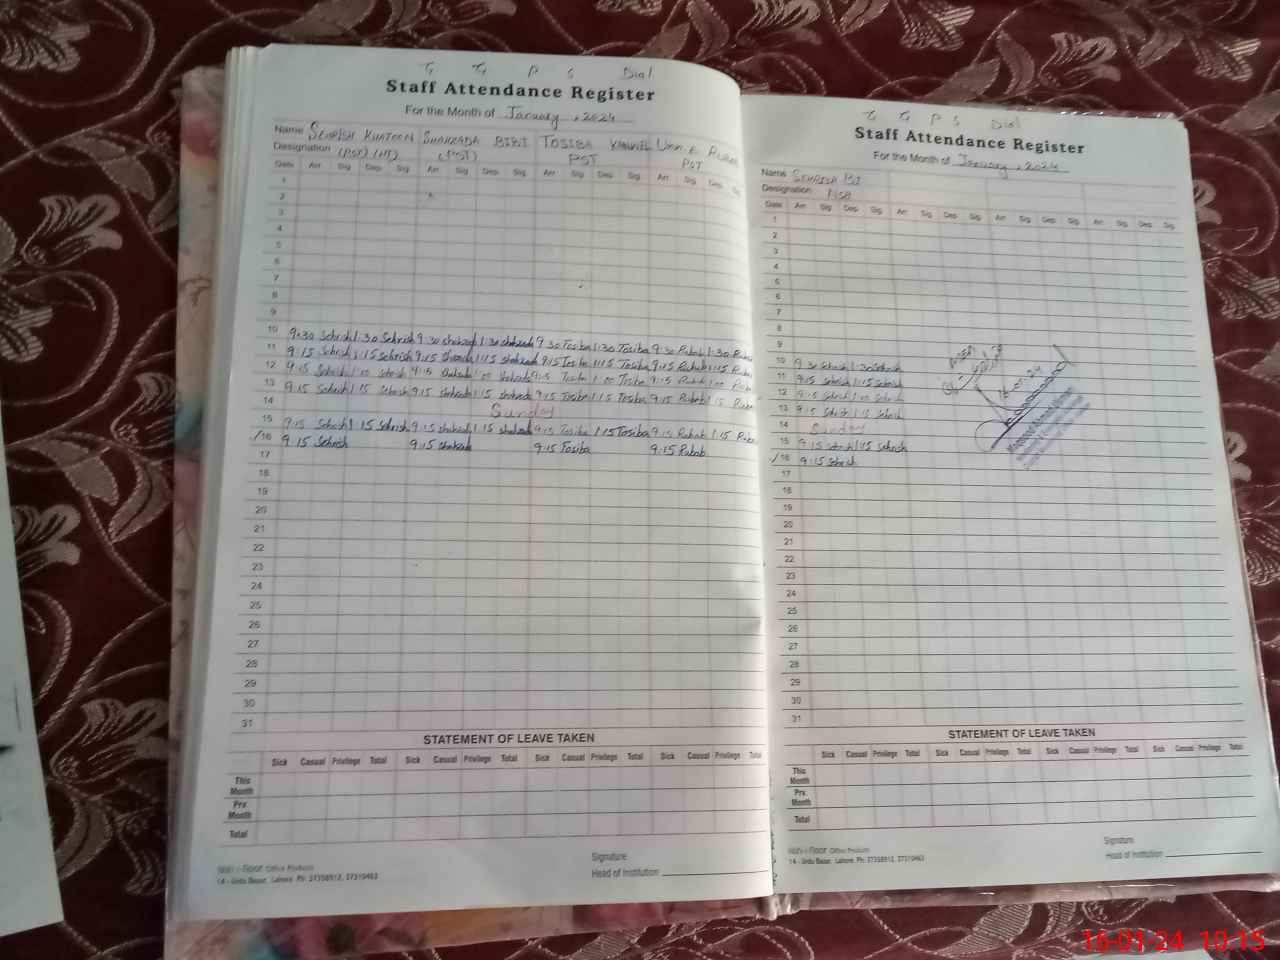 G G P S Dial
Staff Attendance Register
For the Month of January, 2024
Name SEHRISH KHATOON SHAHZADA BIBI TOSIBA KANWEL Umm-E RUBAB
Designation (PST) (HT) (PST) PST PST
Date Arr Sig Dep. Sig Arr Sig. Dep. Sig Arr Sig Dep Sig Arr Sig Dep. Sig
1
2
3
4
5
6
7
8
9
10 9:30 Sehrish 1:30 Sehrish 9:30 shahzad 1:30 shahzad 9:30 Tosiba 1:30 Tosiba 9:30 Rubab 1:30 Rubab
11 9:15 Sehrish 1:15 Sehrish 9:15 shahzad 1:15 shahzad 9:15 Tosiba 1:15 Tosiba 9:15 Rubab 1:15 Rubab
12 9:15 Sehrish 1:00 Sehrish 9:15 1:00 shahzad 9:15 Tosiba 1:00 Tosiba 9:15 Rubab 1:00 Rubab
13 9:15 Sehrish 1:15 Sehrish 9:15 shahzad 1:15 shahzad 9:15 Tosiba 1:15 Tosiba 9:15 Rubab 1:15 Rubab
14 Sunday
15 9:15 Sehrish 1:15 Sehrish 9:15 shahzad 1:15 shahzad 9:15 Tosiba 1:15 Tosiba 9:15 Rubab 1:15 Rubab
16 9:15 Sehrish 9:15 shahzad 9:15 Tosiba 9:15 Rubab
17
18
19
20
21
22
23
24
25
26
27
28
29
30
31
STATEMENT OF LEAVE TAKEN
Sick Casual Privilege Total Sick Casual Privilege Total Sick Casual Privilege Total Sick Casual Privilege Total
This Month
Prv. Month
Total
Signature
Head of Institution
Office Products
14 - Urdu Bazar, Lahore. Ph: 37358912, 37310463
G G P S Dial
Staff Attendance Register
For the Month of January, 2024
Name SEHRISH BI
Designation NSB
Date Arr Sig. Dep Sig. Arr Sig. Dep Sig Arr Sig. Dep Sig. Arr Sig. Dep. Sig.
1
2
3
4
5
6
7
8
9
10 9:30 Sehrish 1:30 Sehrish
11 9:15 Sehrish 1:15 Sehrish
12 9:15 Sehrish 1:00 Sehrish
13 9:15 Sehrish 1:15 Sehrish
14 Sunday
15 9:15 Sehrish 1:15 Sehrish
16 9:15 Sehrish
16-01-24
17
18
19
20
21
22
23
24
25
26
27
28
29
30
31
STATEMENT OF LEAVE TAKEN
Sick Casual Privilege Total Sick Casual Privilege Total Sick Casual Privilege Total Sick Casual Privilege Total
This Month
Prv. Month
Total
Signature
Head of Institution
Office Products
14 - Urdu Bazar, Lahore. Ph: 37358912, 37310463
16-01-24 10:15